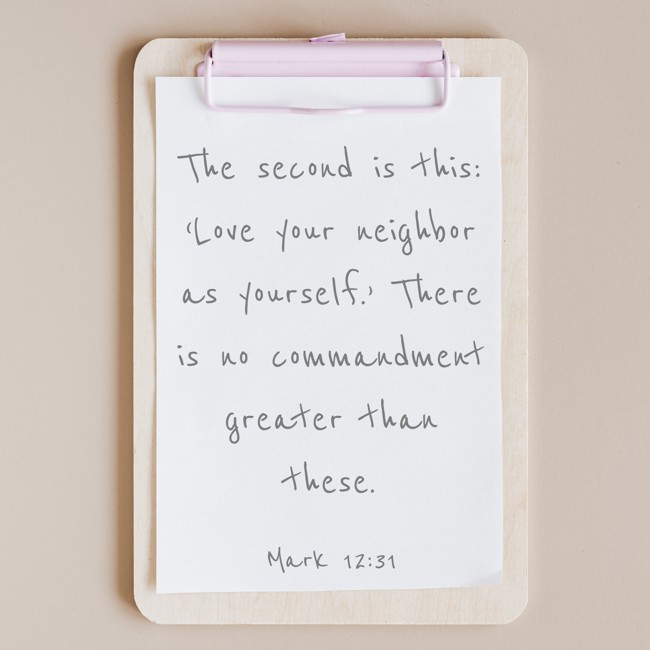 The second is this:
‘Love your neighbor
as yourself.’ There
is no commandment
greater than
these.
Mark 12:31